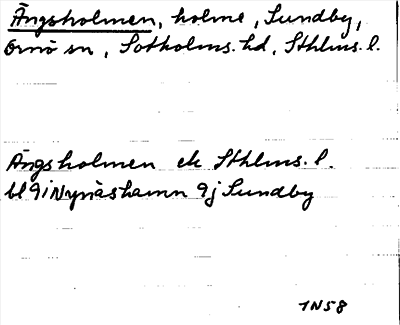 Ängsholmen, holme, Sundby,
Ornö sn, Sotholms hd, Sthlms. l.
Ängsholmen ek Sthlms. l.
bl 9i Nynäshamn 9j Sundby
1N58